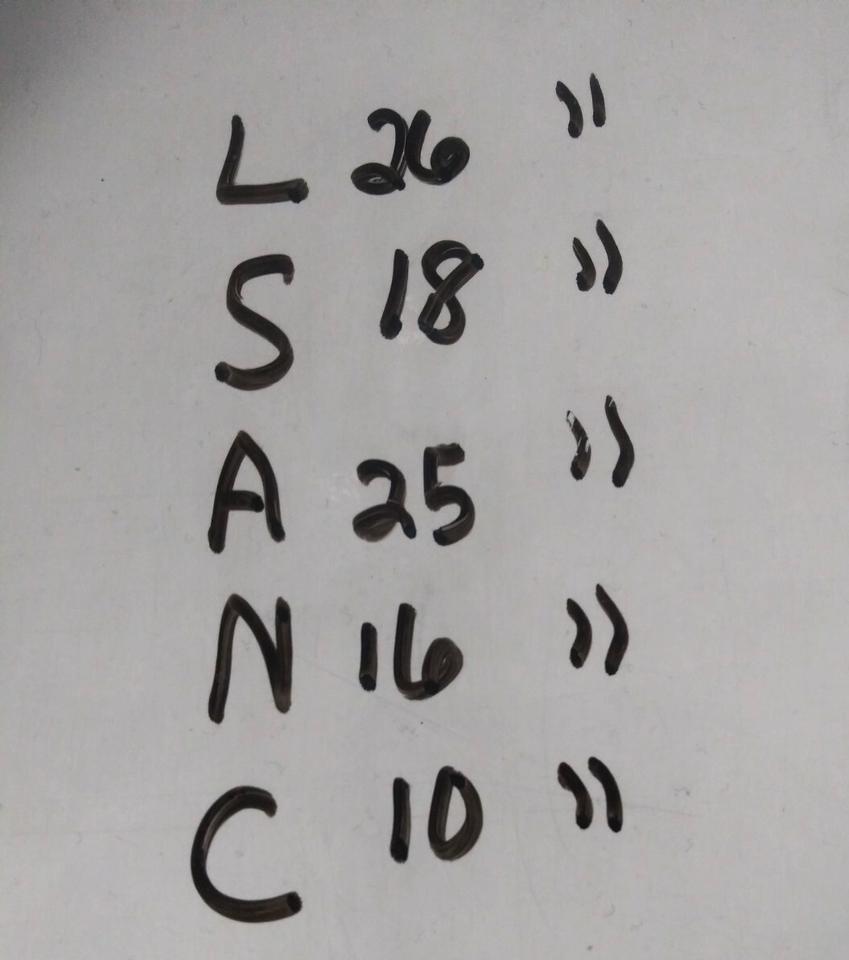 L 26 "
S 18 "
A 25 "
N 16 "
C 10 "